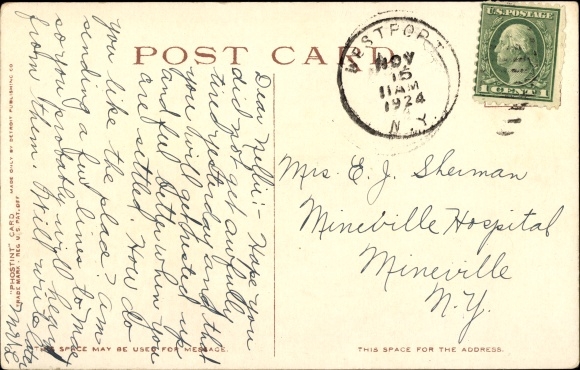 POST CARD
WESTPORT
NOV
15
11 AM
1924
N.Y.
U.S. POSTAGE
1 CENT
Dear Nellie:- Hope you
did not get awfully
tired yesterday and that
you will get rested up
and feel better when you
are settled. How do
you like the place? am
sending a few lines to Mae
so you probably will hear
from them. Will write later
Mrs. E. J. Sherman
Mineville Hospital
Mineville
N.Y.
"PHOSTINT" CARD
TRADE MARK - REG. U.S. PAT. OFF
MADE ONLY BY DETROIT PUBLISHING CO.
THIS SPACE MAY BE USED FOR MESSAGE.
THIS SPACE FOR THE ADDRESS.